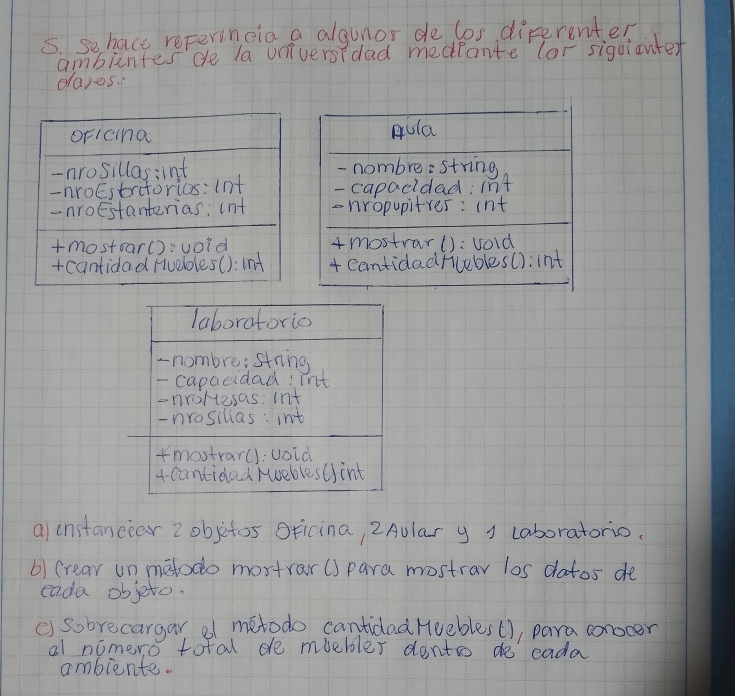 5. Se hace referencia a algunos de los diferentes
ambientes de la universidad mediante los siguientes
clases:
Oficina
-nroSillas:int
-nroEscritorios:int
-nroEstanterias:int
+mostrar():void
+cantidadMuebles():int
Aula
-nombre:string
-capacidad:int
-nropupitres:int
+mostrar():void
+cantidadMuebles():int
laboratorio
-nombre:string
-capacidad:int
-nroMesas:int
-nrosillas:int
+mostrar():void
+cantidadMuebles()int
a) instanciar 2 objetos Oficina, 2 Aulas y 1 Laboratorio.
b) Crear un método mostrar() para mostrar los datos de
cada objeto.
c) Sobrecargar el método cantidadMuebles(), para conocer
al número total de muebles dentro de cada
ambiente.